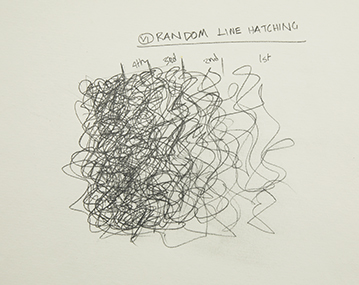 VI RANDOM LINE HATCHING
4th 3rd 2nd 1st